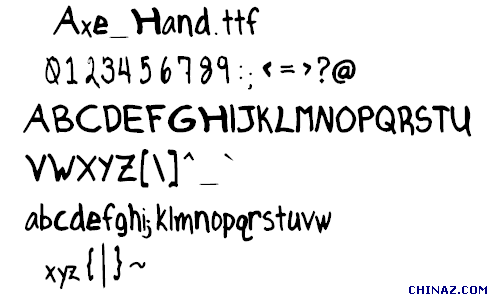 Axe_Hand.ttf
0123456789:;<=>?@
ABCDEFGHIJKLMNOPQRSTU
VWXYZ[\]^_`
abcdefghijklmnopqrstuvw
xyz{|}~
CHINAZ.COM